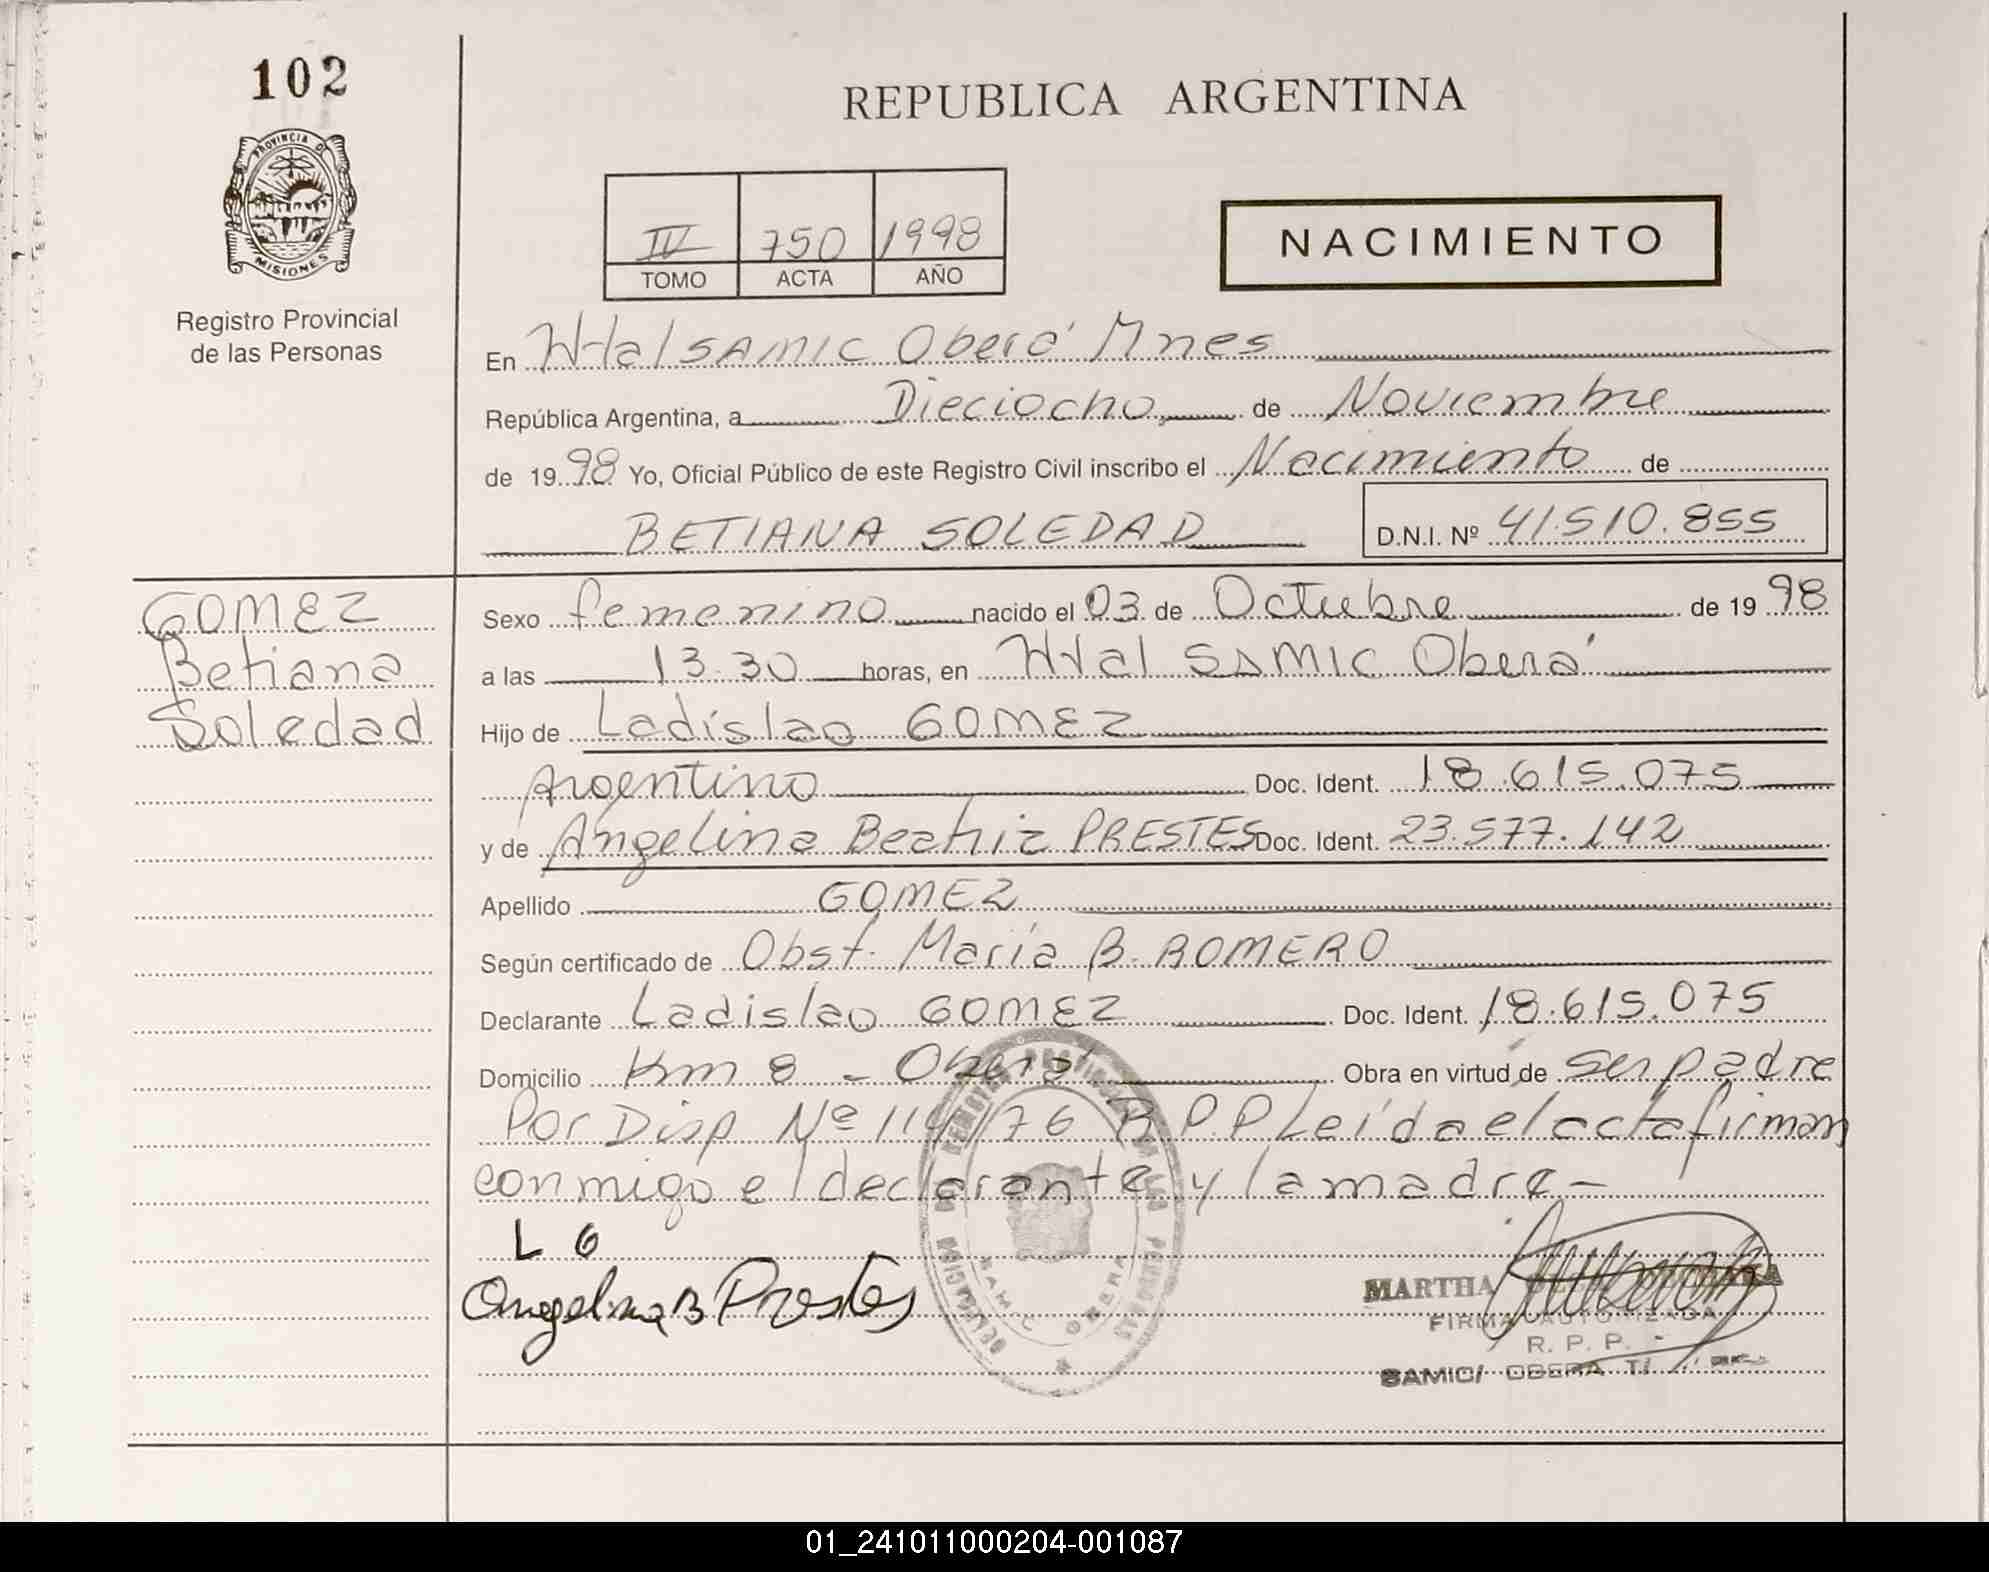 102
PROVINCIA DE
MISIONES
Registro Provincial
de las Personas
REPUBLICA ARGENTINA
IV 750 1998
TOMO ACTA AÑO
NACIMIENTO
En H-tal SAMIC Oberá Mnes
República Argentina, a Dieciocho de Noviembre
de 1998 Yo, Oficial Público de este Registro Civil inscribo el Nacimiento de
BETIANA SOLEDAD D.N.I. Nº 41.510.855
GOMEZ
Betiana
Soledad
Sexo femenino nacido el 03 de Octubre de 1998
a las 13.30 horas, en H-tal SAMIC Oberá
Hijo de Ladíslao GOMEZ
Argentino Doc. Ident. 18.615.075
y de Angelina Beatriz PRESTES Doc. Ident. 23.577.142
Apellido GOMEZ
Según certificado de Obst. María B. ROMERO
Declarante Ladislao GOMEZ Doc. Ident. 18.615.075
Domicilio Km 8 - Oberá Obra en virtud de ser padre
Por Disp Nº 114/76 R.P.P Leída el acta firman
conmigo el declarante y la madre-
L G
Angelina B Prestes
MARTHA
FIRMA AUTORIZADA
R. P. P.
SAMIC/ OBERA
01_241011000204-001087